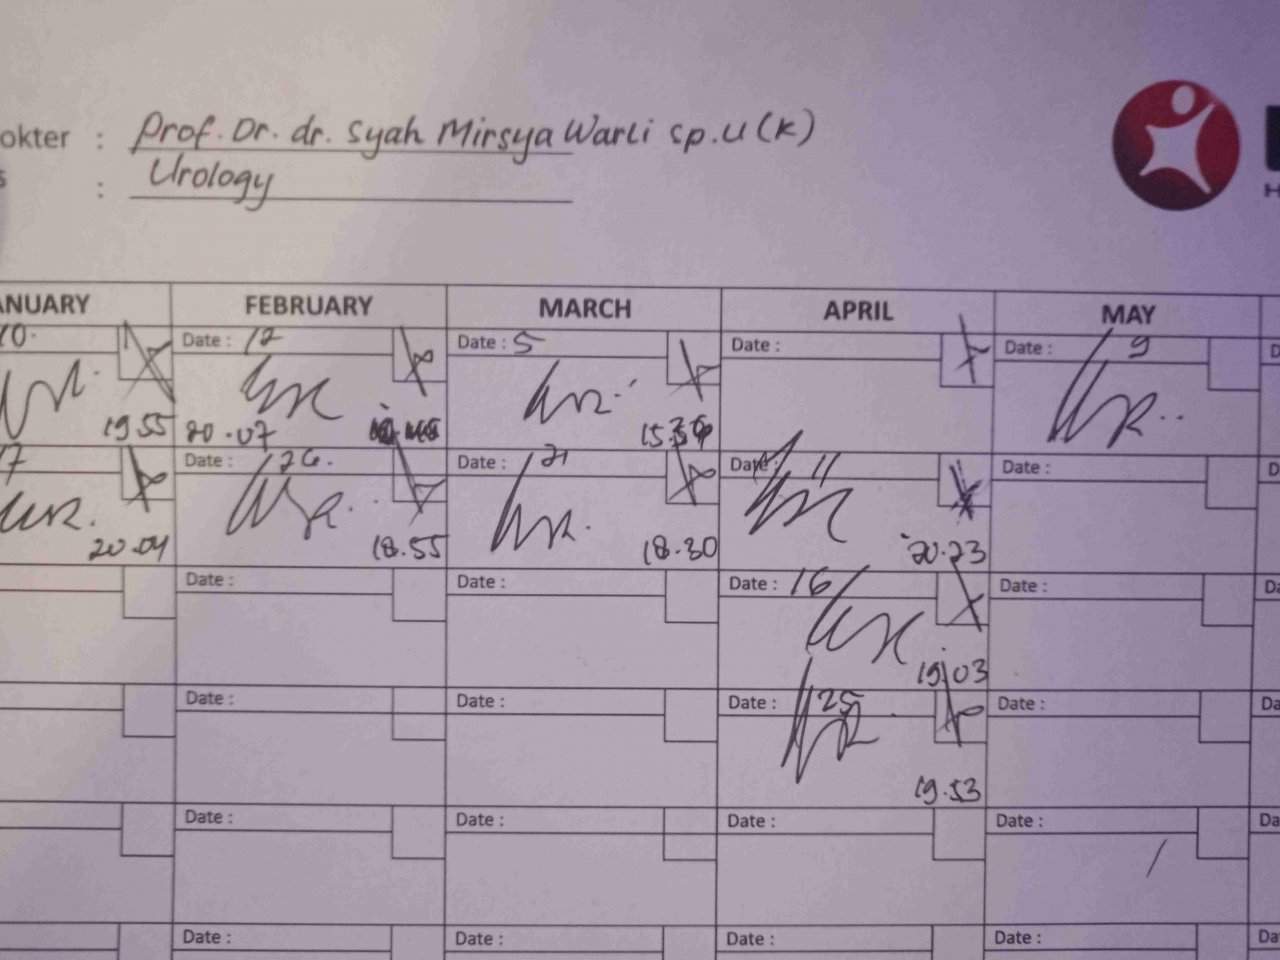 okter : Prof. Dr. dr. Syah Mirsya Warli sp.U (K)
s : Urology
H
ANUARY FEBRUARY MARCH APRIL MAY
10. Date : 12 Date : 5 Date : Date : 9 D
19.55 20.07 15.
7 Date : 26. Date : 21 Date : 11 Date : D
20.04 18.55 18.30 20.23
Date : Date : Date : 16 Date : Da
19.03
Date : Date : Date : 25 Date : Da
19.53
Date : Date : Date : Date : Da
Date : Date : Date : Date : Da